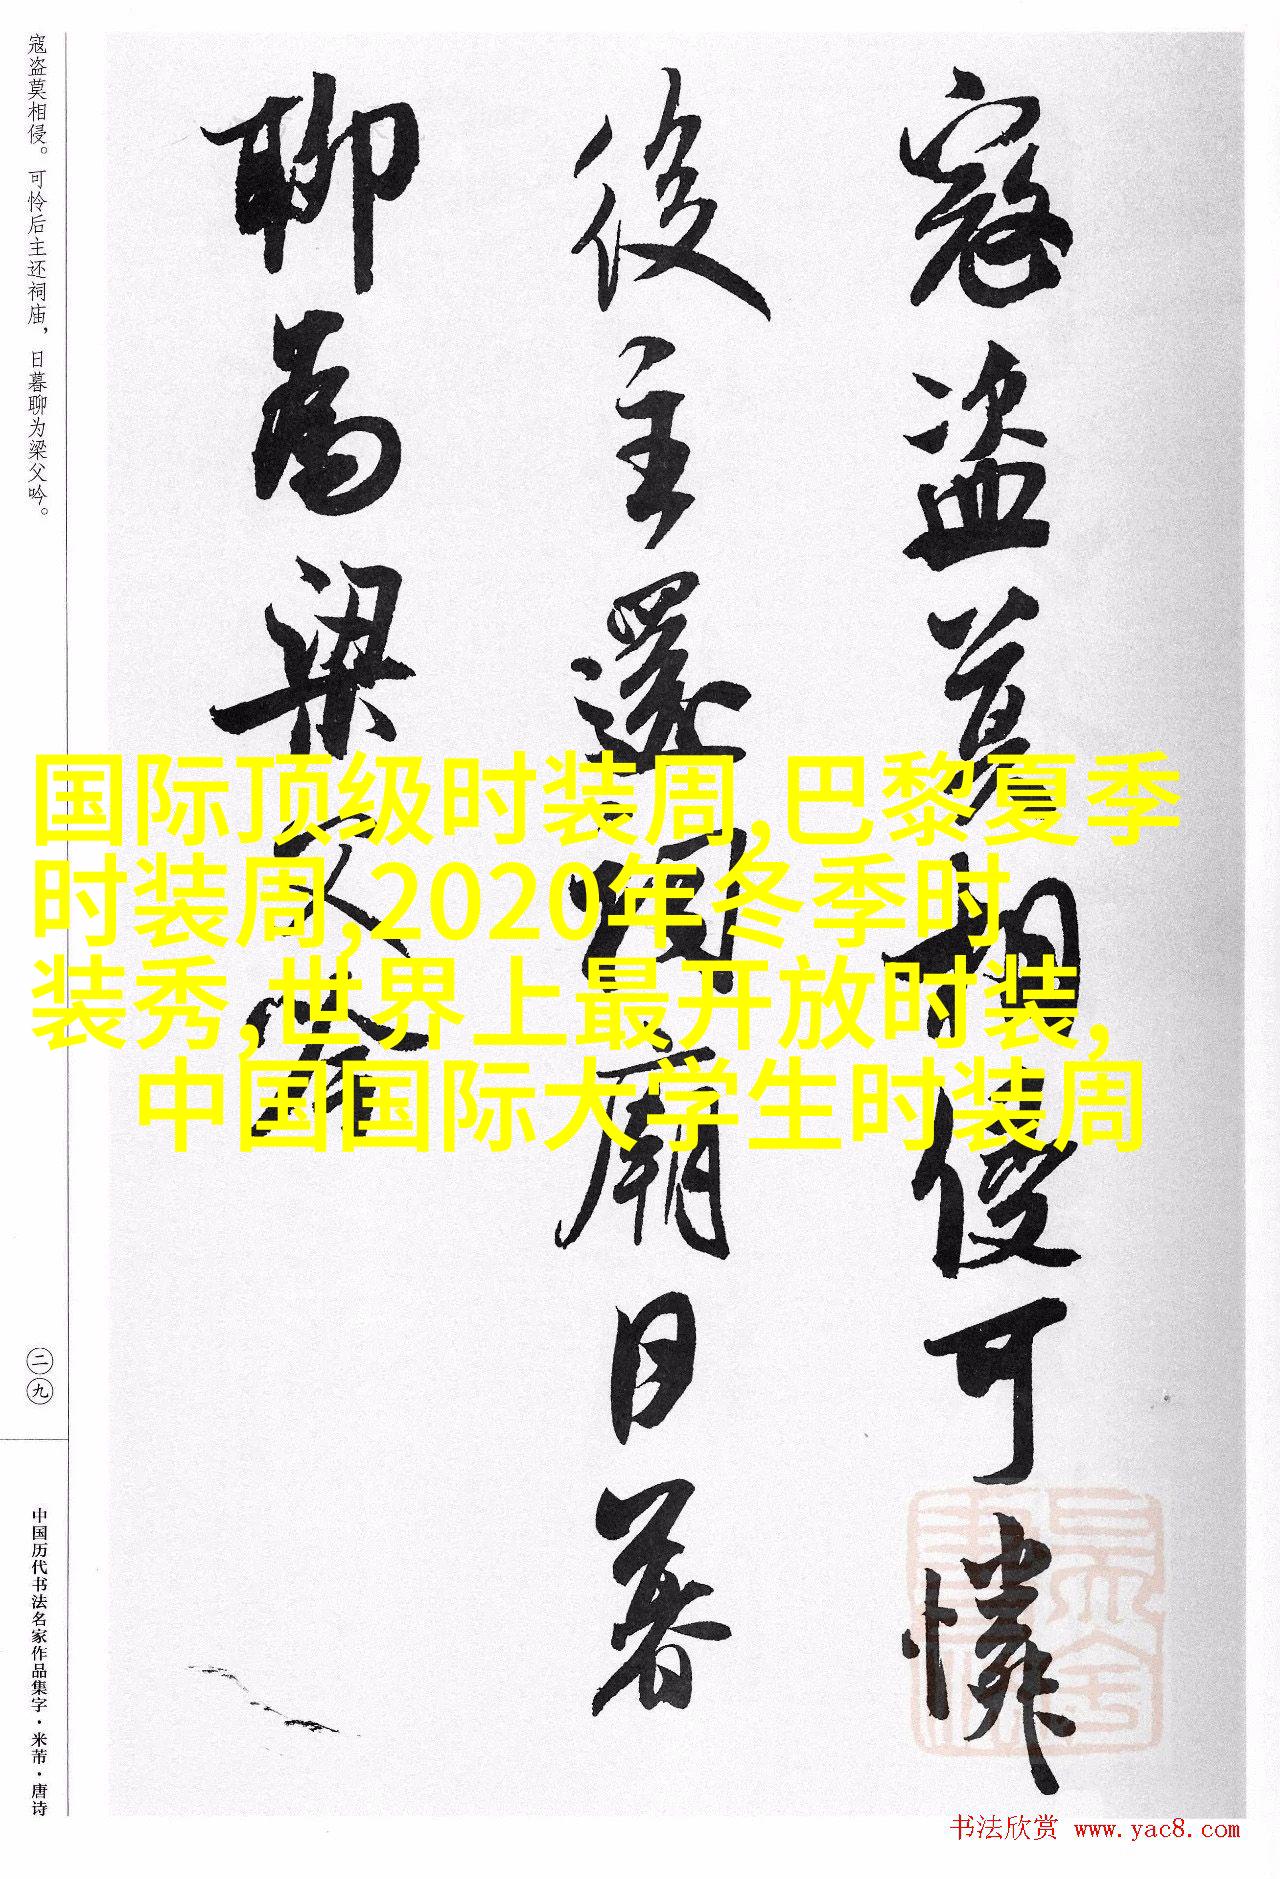 寇盗莫相侵。可怜后主还祠庙，日暮聊为梁父吟。
寇盗莫相侵可憐
後主還祠廟日暮
聊為梁父吟
国际顶级时装周,巴黎夏季
时装周,2020年冬季时
装秀,世界上最开放时装,
中国国际大学生时装周
二九
中国历代书法名家作品集字·米芾·唐诗
书法欣赏 www.yac8.com